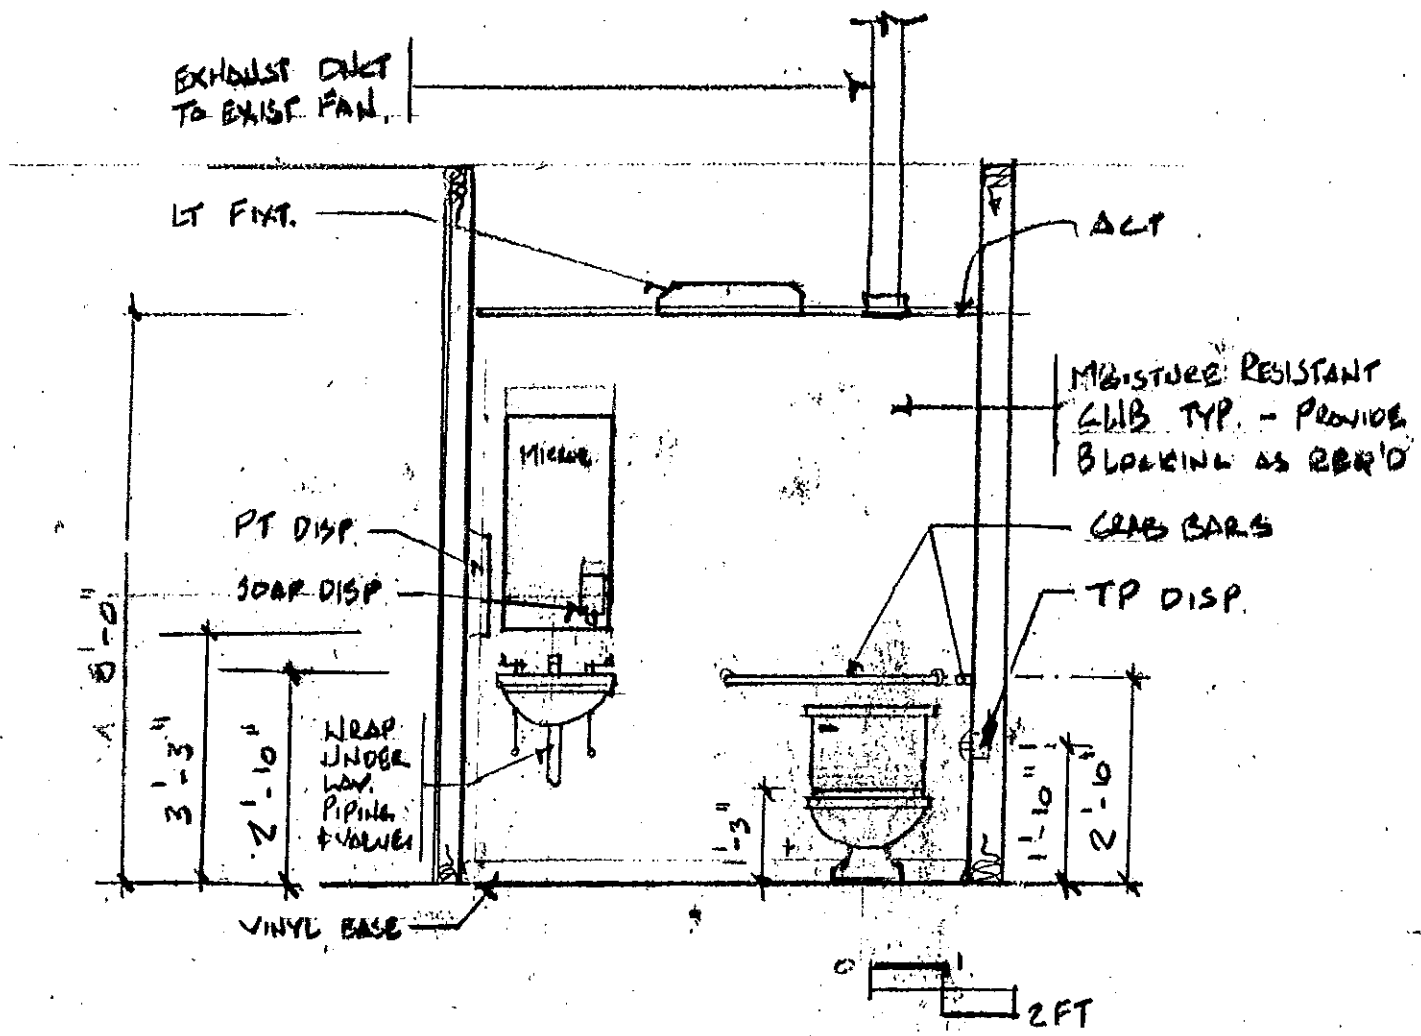 EXHAUST DUCT
TO EXIST FAN.
LT FIXT.
ACT
MOISTURE RESISTANT
GWB TYP. - PROVIDE
BLOCKING AS REQ'D
MIRROR
PT DISP.
GRAB BARS
SOAP DISP
TP DISP.
8'-0"
3'-3"
2'-10"
WRAP
UNDER
LAV.
PIPING
+ VALVES
1'-3"
1'-10"
2'-10"
VINYL BASE
0 1
2 FT